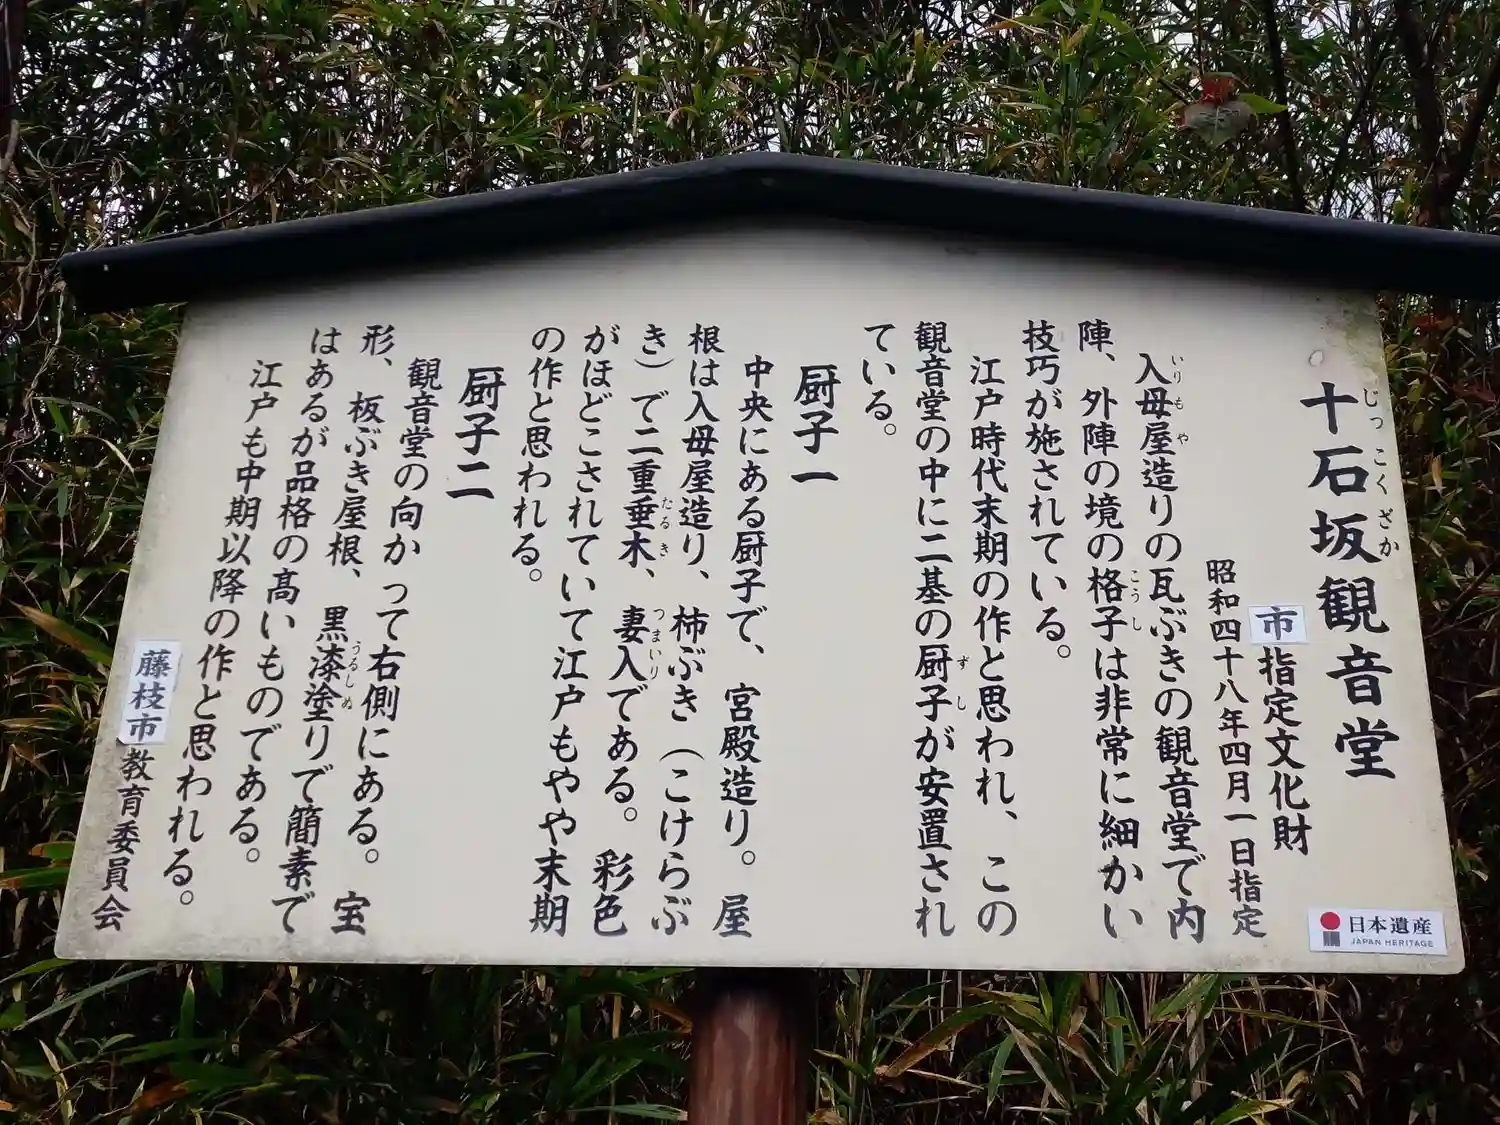 十石坂観音堂
じっこくざか
市指定文化財
昭和四十八年四月一日指定
入母屋造りの瓦ぶきの観音堂で内
いりもや
陣、外陣の境の格子は非常に細かい
こうし
技巧が施されている。
江戸時代末期の作と思われ、この
観音堂の中に二基の厨子が安置され
ずし
ている。
厨子一
中央にある厨子で、宮殿造り。屋
根は入母屋造り、柿ぶき（こけらぶ
き）で二重垂木、妻入である。彩色
たるき
つまいり
がほどこされていて江戸もやや末期
の作と思われる。
厨子二
観音堂の向かって右側にある。宝
形、板ぶき屋根、黒漆塗りで簡素で
うるしぬ
はあるが品格の高いものである。
江戸も中期以降の作と思われる。
藤枝市教育委員会
日本遺産
JAPAN HERITAGE